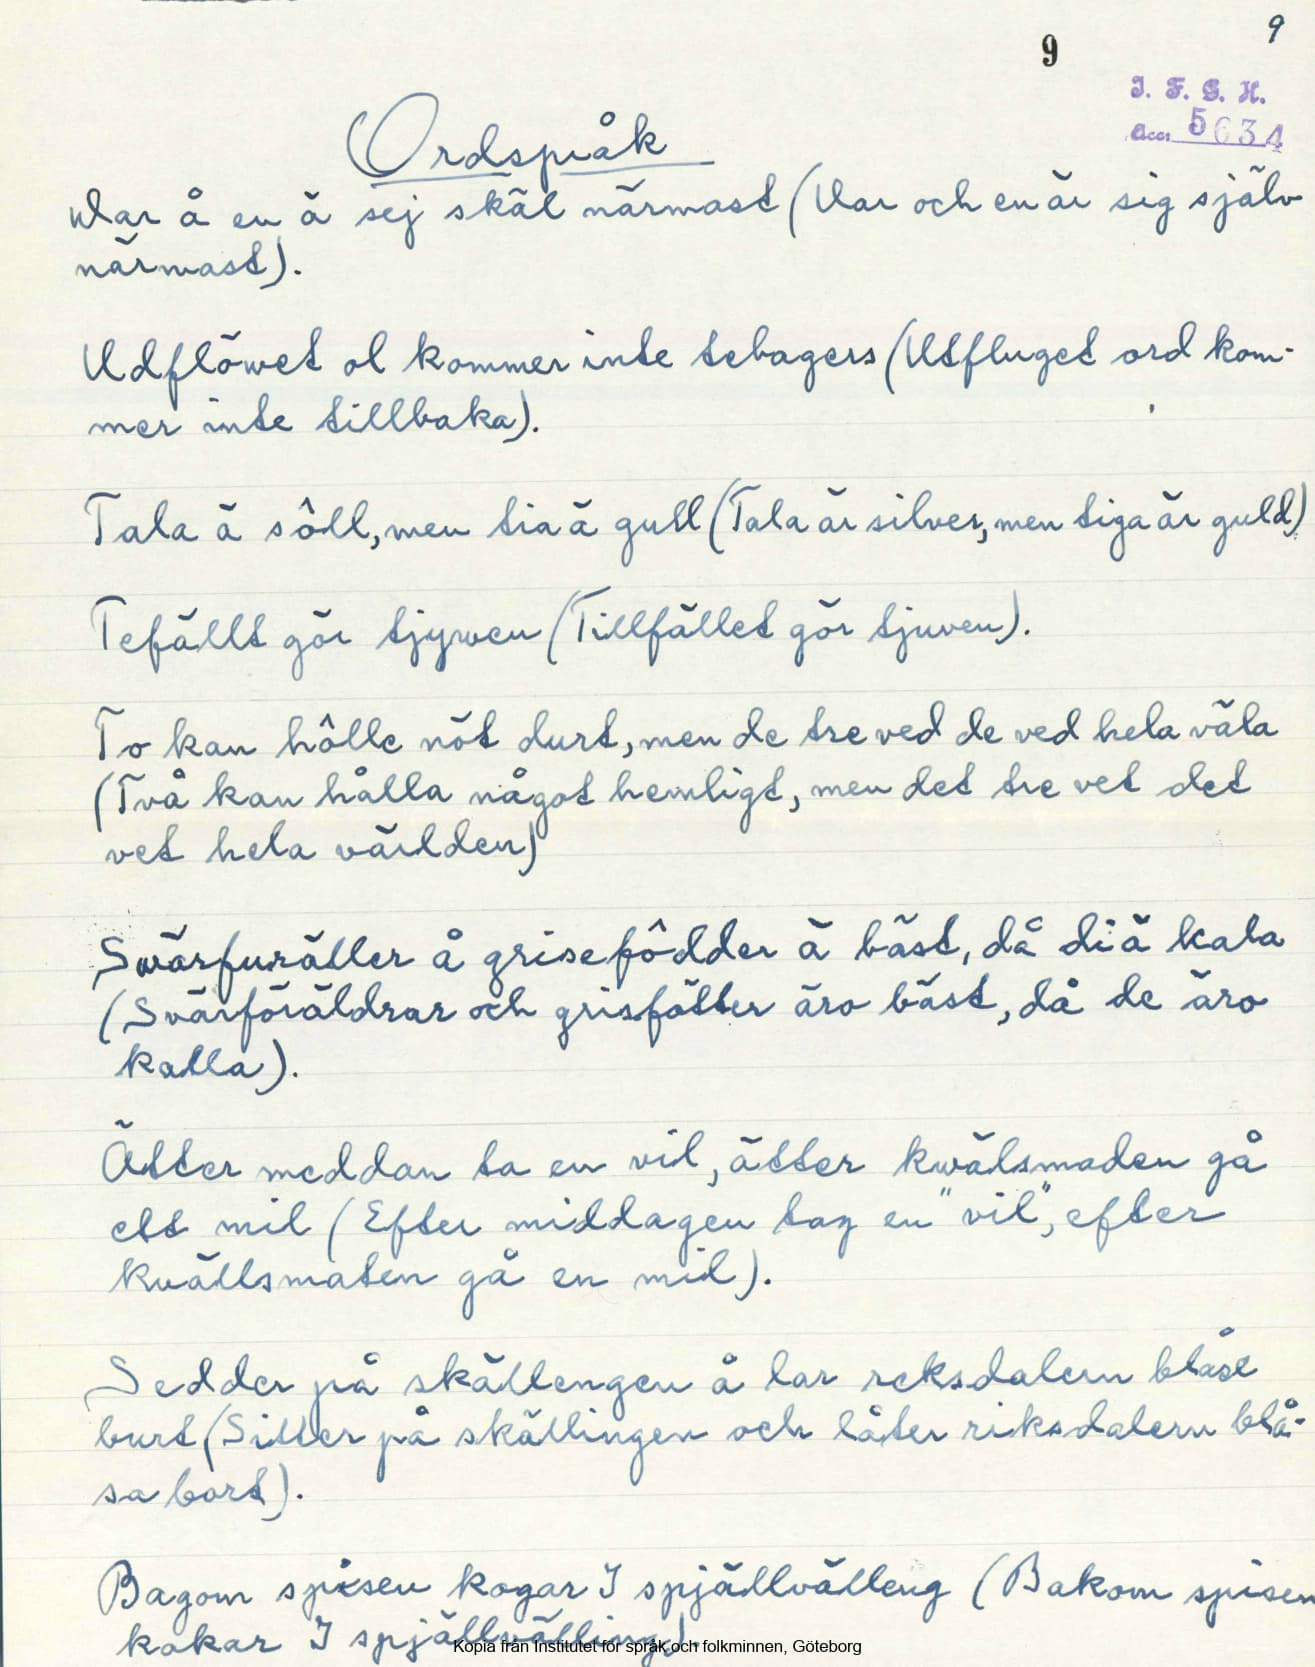 9
9
I. F. G. H.
Acc. 5634
Ordspråk
War å en ä sej skäl närmast (Var och en är sig själv
närmast).
Udflöwet ol kommer inte tebagers (Utfluget ord kom-
mer inte tillbaka).
Tala ä sôll, men tia ä gull (Tala är silver, men tiga är guld)
Tefällt gör tjywen (Tillfället gör tjuven).
To kan hôlle nöt durt, men de tre ved de ved hela väla
(Två kan hålla något hemligt, men det tre vet det
vet hela världen)
Swärfuräller å grisefôdder ä bäst, då di ä kala
(Svärföräldrar och grisfötter äro bäst, då de äro
kalla).
Ätter meddan ta en vil, ätter kwälsmaden gå
ett mil (Efter middagen tag en "vil", efter
kvällsmaten gå en mil).
Sedder på skällengen å lar reksdalern blåse
burt (Sitter på skällingen och låter riksdalern blå-
sa bort).
Bagom spisen kogar I spjällvälleng (Bakom spisen
kokar I spjällvälling).
Kopia från Institutet för språk och folkminnen, Göteborg